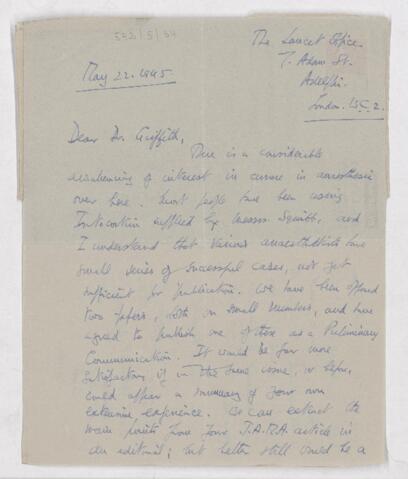 542/5/34
The Lancet Office.
7. Adam St.
Adelphi.
London. W.C.2.
May 22. 1945.
Dear Dr. Griffith,
There is a considerable
awakening of interest in curare in anaesthesia
over here. Most people have been using
Intocostrin supplied by Messrs. Squibb, and
I understand that various anaesthetists have
small series of successful cases, not yet
sufficient for publication. We have been offered
two papers, both on small numbers, and have
agreed to publish one of these as a Preliminary
Communication. It would be far more
satisfactory if in the same issue, or before,
could appear a summary of your own
extensive experience. We can extract the
main points from your J.A.M.A. article in
an editorial; but better still would be a